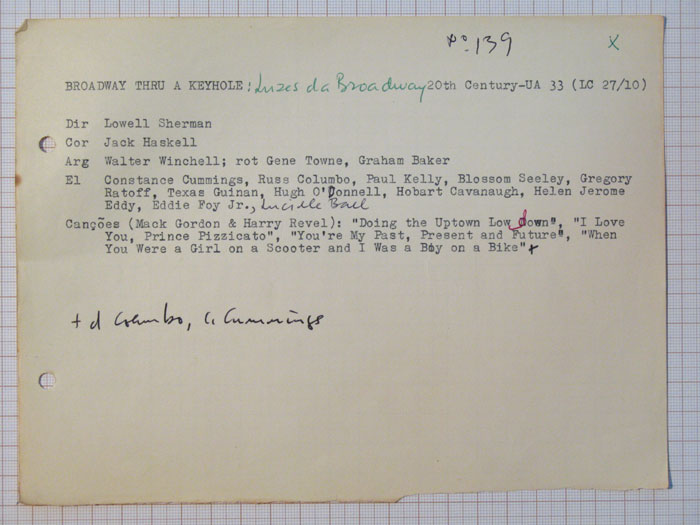 Nº 139 X
BROADWAY THRU A KEYHOLE: Luzes da Broadway 20th Century-UA 33 (LC 27/10)
Dir Lowell Sherman
Cor Jack Haskell
Arg Walter Winchell; rot Gene Towne, Graham Baker
El Constance Cummings, Russ Columbo, Paul Kelly, Blossom Seeley, Gregory
Ratoff, Texas Guinan, Hugh O'Donnell, Hobart Cavanaugh, Helen Jerome
Eddy, Eddie Foy Jr., Lucille Ball
Canções (Mack Gordon & Harry Revel): "Doing the Uptown Low down", "I Love
You, Prince Pizzicato", "You're My Past, Present and Future", "When
You Were a Girl on a Scooter and I Was a Boy on a Bike"+
+ d Columbo, C Cummings